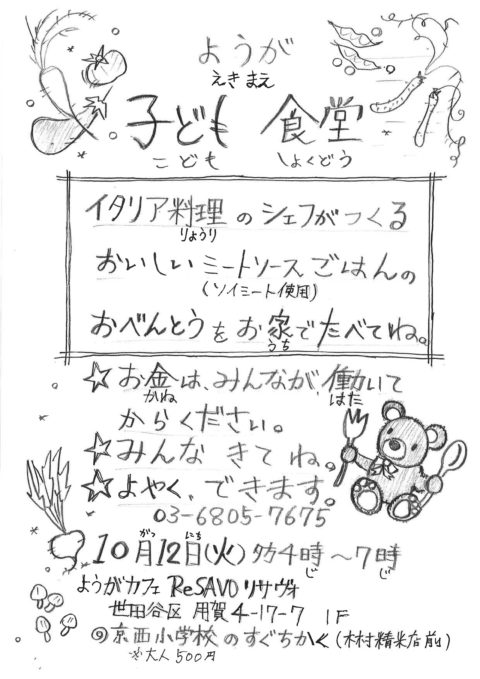 ようが
えきまえ
子ども 食堂
こども しょくどう
イタリア料理のシェフがつくる
りょうり
おいしいミートソースごはんの
(ソイミート使用)
おべんとうをお家でたべてね。
うち
☆お金は、みんなが、働いて
かね はた
からください。
☆みんな きてね。
☆よやく、できます。
03-6805-7675
がつ にち
10月12日(火)夕方4時〜7時
じ じ
ようがカフェ ReSAVO リサヴォ
世田谷区 用賀 4-17-7 1F
◎京西小学校のすぐちかく(木村精米店前)
※大人500円